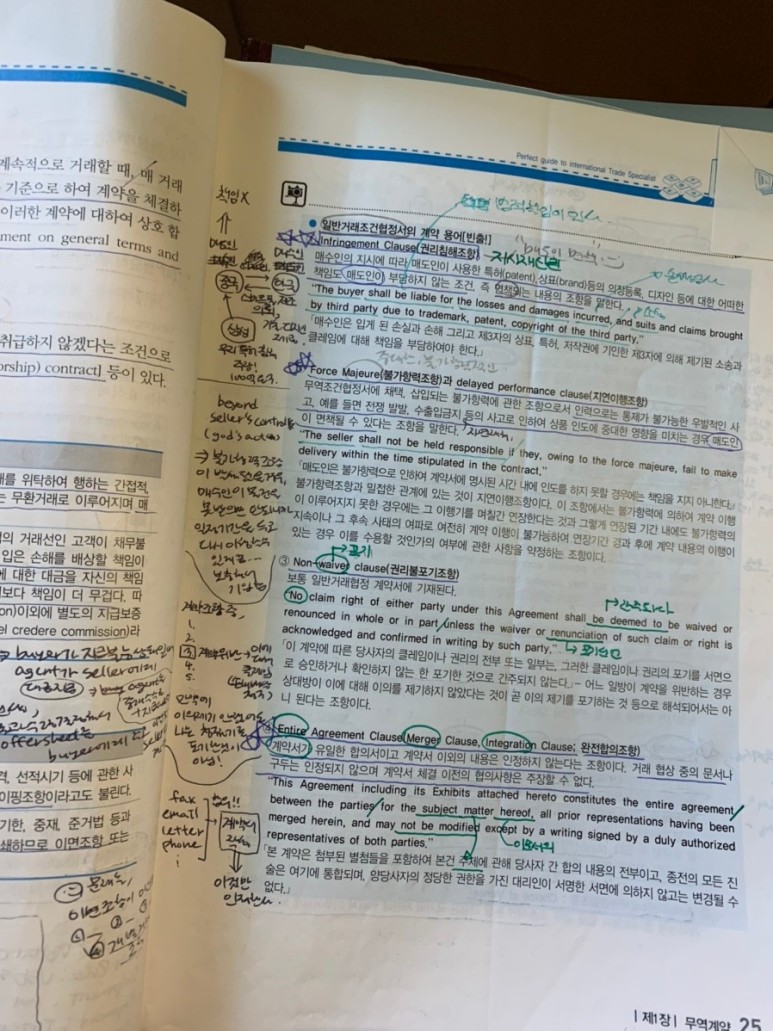 계속적으로 거래할 때, 매 거래
기준으로 하여 계약을 체결하
이러한 계약에 대하여 상호 합
ment on general terms and
취급하지 않겠다는 조건으로
orship) contract] 등이 있다.
를 위탁하여 행하는 간접적,
는 무환거래로 이루어지며 매
의 거래선인 고객이 채무불
입은 손해를 배상할 책임이
에 대한 대금을 자신의 책임
보다 책임이 더 무겁다. 따
on)이외에 별도의 지급보증
el credere commission)라
offer sheet는
격, 선적시기 등에 관한 사
이핑조항이라고도 불린다.
기한, 중재, 준거법 등과
쇄하므로 이면조항 또는
Perfect guide to International Trade Specialist
책임X
중국
한국
● 일반거래조건협정서의 계약 용어[빈출!]
Infringement Clause(권리침해조항)
지식재산권
매수인의 지시에 따라 매도인이 사용한 특허(patent), 상표(brand)등의 의장등록, 디자인 등에 대한 어떠한
책임도 매도인이 부담하지 않는 조건, 즉 면책되는 내용의 조항을 말한다.
"The buyer shall be liable for the losses and damages incurred, and suits and claims brought
by third party due to trademark, patent, copyright of the third party."
「매수인은 입게 된 손실과 손해 그리고 제3자의 상표, 특허, 저작권에 기인한 제3자에 의해 제기된 소송과
클레임에 대해 책임을 부담하여야 한다.」
Force Majeure(불가항력조항)과 delayed performance clause(지연이행조항)
무역조건협정서에 채택, 삽입되는 불가항력에 관한 조항으로서 인력으로는 통제가 불가능한 우발적인 사
고, 예를 들면 전쟁 발발, 수출입금지 등의 사고로 인하여 상품 인도에 중대한 영향을 미치는 경우 매도인
이 면책될 수 있다는 조항을 말한다.
"The seller shall not be held responsible if they, owing to the force majeure, fail to make
delivery within the time stipulated in the contract."
「매도인은 불가항력으로 인하여 계약서에 명시된 시간 내에 인도를 하지 못할 경우에는 책임을 지지 아니한다.」
불가항력조항과 밀접한 관계에 있는 것이 지연이행조항이다. 이 조항에서는 불가항력에 의하여 계약 이행
이 이루어지지 못한 경우에는 그 이행기를 며칠간 연장한다는 것과 그렇게 연장된 기간 내에도 불가항력의
지속이나 그 후속 사태의 여파로 여전히 계약 이행이 불가능하여 연장기간 경과 후에 계약 내용의 이행이
있는 경우 이를 수용할 것인가의 여부에 관한 사항을 약정하는 조항이다.
beyond
seller's control
(god's act)
포기
③ Non-waiver clause(권리불포기조항)
보통 일반거래협정 계약서에 기재된다.
간주되다
"No claim right of either party under this Agreement shall be deemed to be waived or
renounced in whole or in part unless the waiver or renunciation of such claim or right is
acknowledged and confirmed in writing by such party."
「이 계약에 따른 당사자의 클레임이나 권리의 전부 또는 일부는, 그러한 클레임이나 권리의 포기를 서면으
로 승인하거나 확인하지 않는 한 포기한 것으로 간주되지 않는다.」- 어느 일방이 계약을 위반하는 경우
상대방이 이에 대해 이의를 제기하지 않았다는 것이 곧 이의 제기를 포기하는 것 등으로 해석되어서는 아
니 된다는 조항이다.
Entire Agreement Clause(Merger Clause, Integration Clause; 완전합의조항)
계약서가 유일한 합의서이고 계약서 이외의 내용은 인정하지 않는다는 조항이다. 거래 협상 중의 문서나
구두는 인정되지 않으며 계약서 체결 이전의 협의사항은 주장할 수 없다.
"This Agreement including its Exhibits attached hereto constitutes the entire agreement
between the parties for the subject matter hereof, all prior representations having been
merged herein, and may not be modified except by a writing signed by a duly authorized
representatives of both parties."
「본 계약은 첨부된 별첨들을 포함하여 본건 주제에 관해 당사자 간 합의 내용의 전부이고, 종전의 모든 진
술은 여기에 통합되며, 양당사자의 정당한 권한을 가진 대리인이 서명한 서면에 의하지 않고는 변경될 수
없다.」
fax
email
letter
phone
이것만
인정한다.
| 제1장 | 무역계약 25